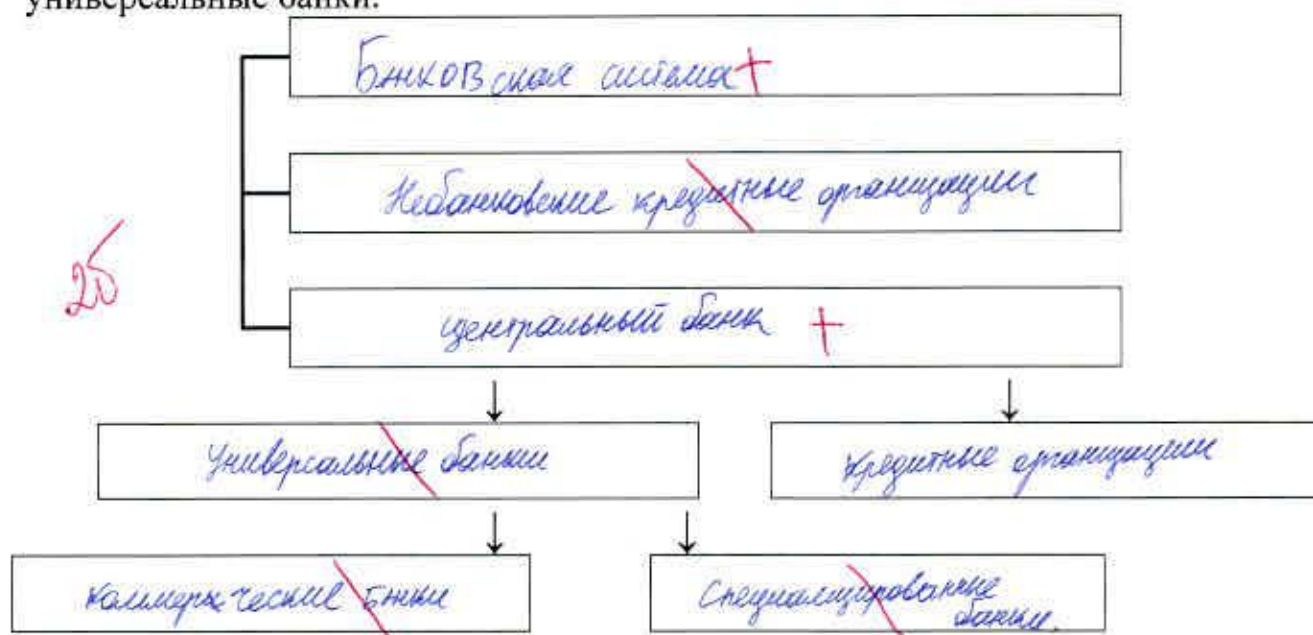 универсальные банки.
Бнковская система +
Небанковские кредитные организации
центральный банк +
2б
Универсальные банки
Кредитные организации
Коммерческие Бнки
Специализированные
банки.